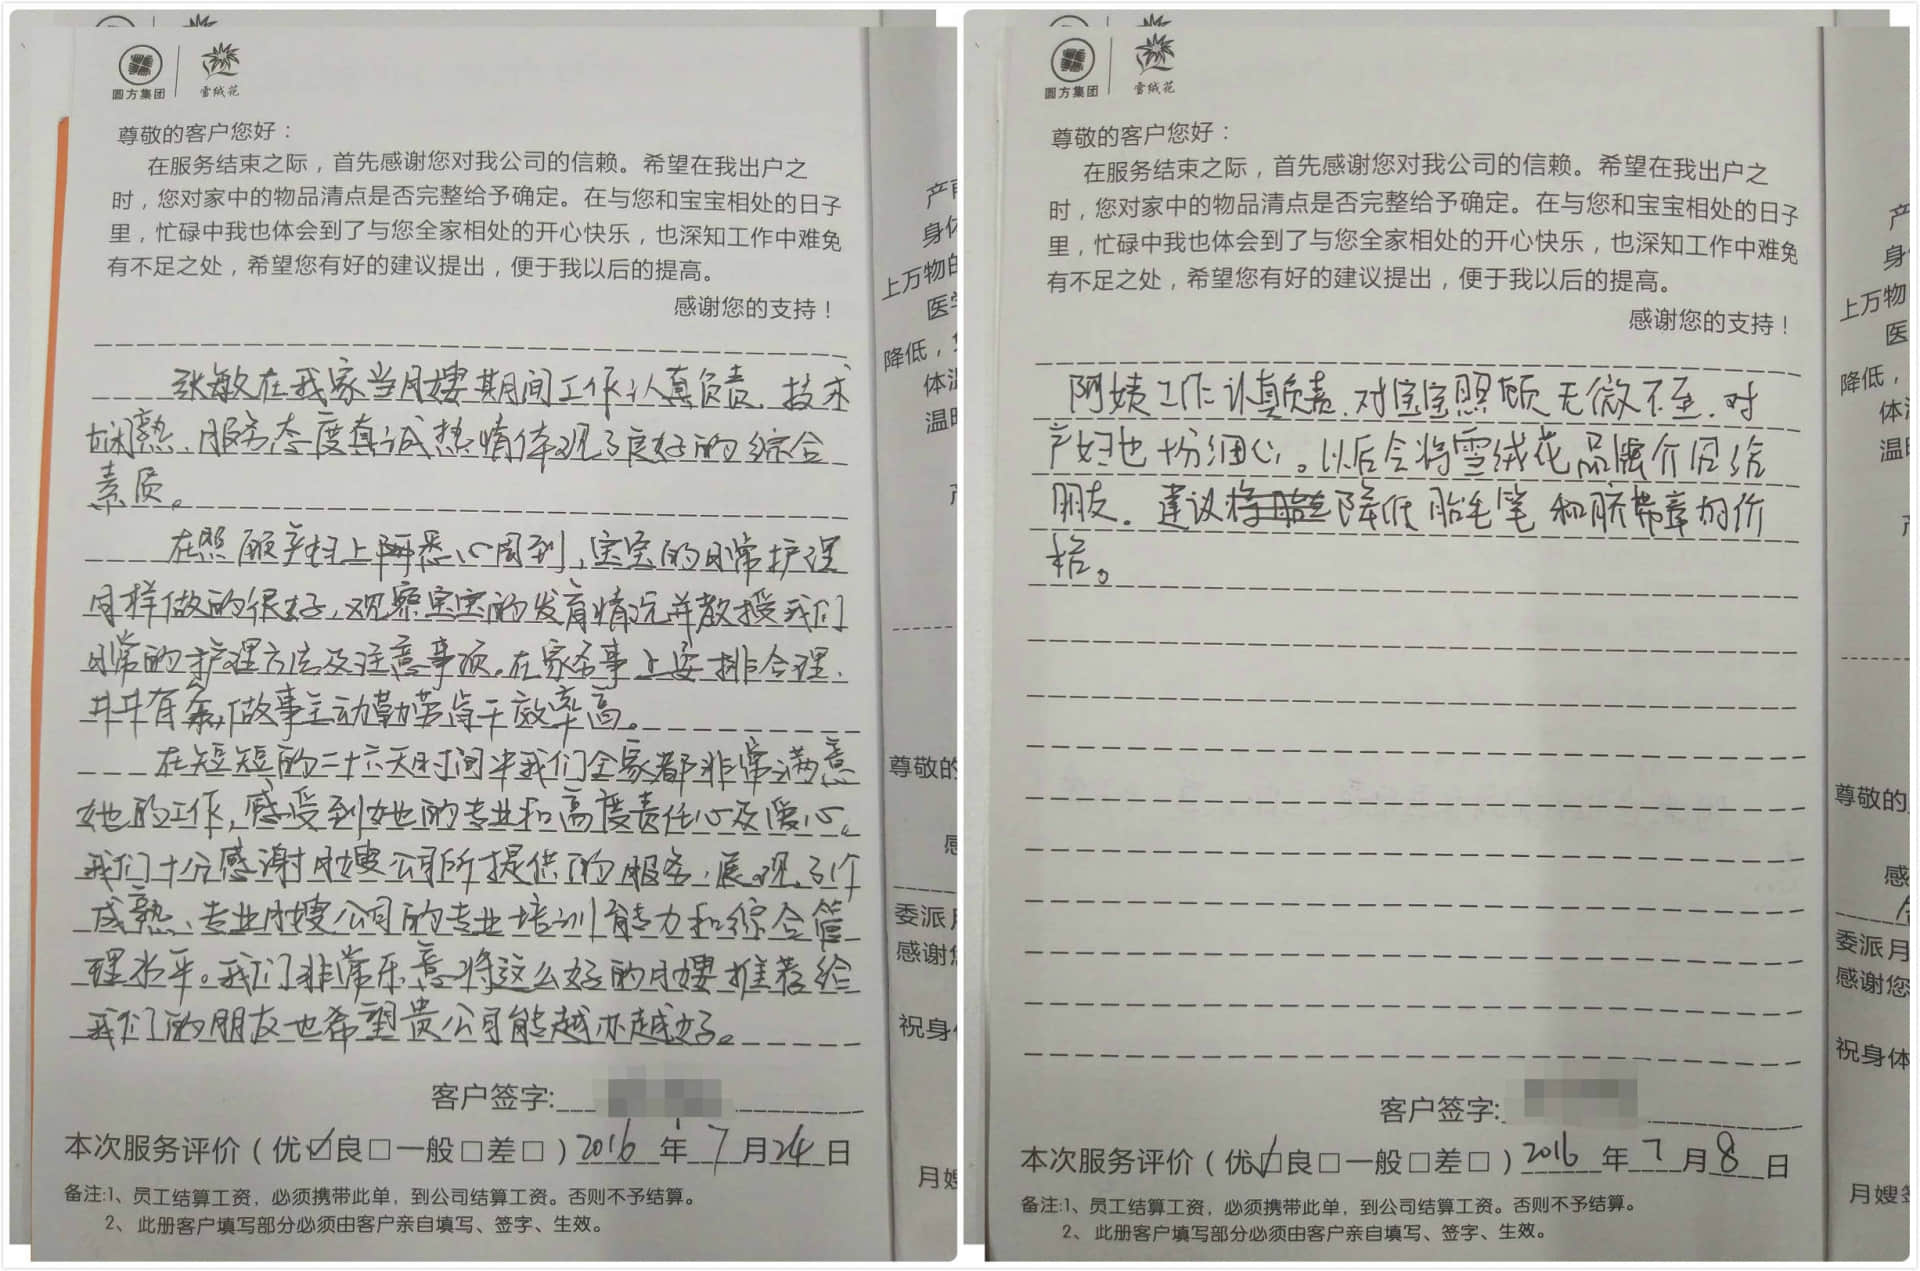 圆方集团
雪绒花
尊敬的客户您好：
在服务结束之际，首先感谢您对我公司的信赖。希望在我出户之
时，您对家中的物品清点是否完整给予确定。在与您和宝宝相处的日子
里，忙碌中我也体会到了与您全家相处的开心快乐，也深知工作中难免
有不足之处，希望您有好的建议提出，便于我以后的提高。
感谢您的支持！
张敏在我家当月嫂期间工作认真负责、技术
娴熟、服务态度真诚热情体现了良好的综合
素质。
在照顾产妇上 悉心周到，宝宝的日常护理
同样做的很好，观察宝宝的发育情况并教授我们
日常的护理方法及注意事项。在家务事上安排合理、
井井有条，做事主动勤劳肯干效率高。
在短短的二十六天时间中我们全家都非常满意
她的工作，感受到她的专业和高度责任心及爱心。
我们十分感谢月嫂公司所提供的服务，展现了个
成熟、专业月嫂公司的专业培训能力和综合管
理水平。我们非常乐意将这么好的月嫂推荐给
我们的朋友也希望贵公司能越办越好。
客户签字:
本次服务评价（优☑良□一般□差□）2016年7月24日
备注:1、员工结算工资，必须携带此单，到公司结算工资。否则不予结算。
2、此册客户填写部分必须由客户亲自填写、签字、生效。
上万物
降低，
体温
尊敬的
委派月
感谢您
月嫂
圆方集团
雪绒花
尊敬的客户您好：
在服务结束之际，首先感谢您对我公司的信赖。希望在我出户之
时，您对家中的物品清点是否完整给予确定。在与您和宝宝相处的日子
里，忙碌中我也体会到了与您全家相处的开心快乐，也深知工作中难免
有不足之处，希望您有好的建议提出，便于我以后的提高。
感谢您的支持！
阿姨工作认真负责、对宝宝照顾无微不至、对
产妇也十分细心。以后会将雪绒花品牌介绍给
朋友。建议降低胎毛笔和脐带章的价
格。
客户签字:
本次服务评价（优☑良□一般□差□）2016年7月8日
备注:1、员工结算工资，必须携带此单，到公司结算工资。否则不予结算。
2、此册客户填写部分必须由客户亲自填写、签字、生效。
上万物
降低，
尊敬的
委派月
感谢您
祝身体
月嫂签